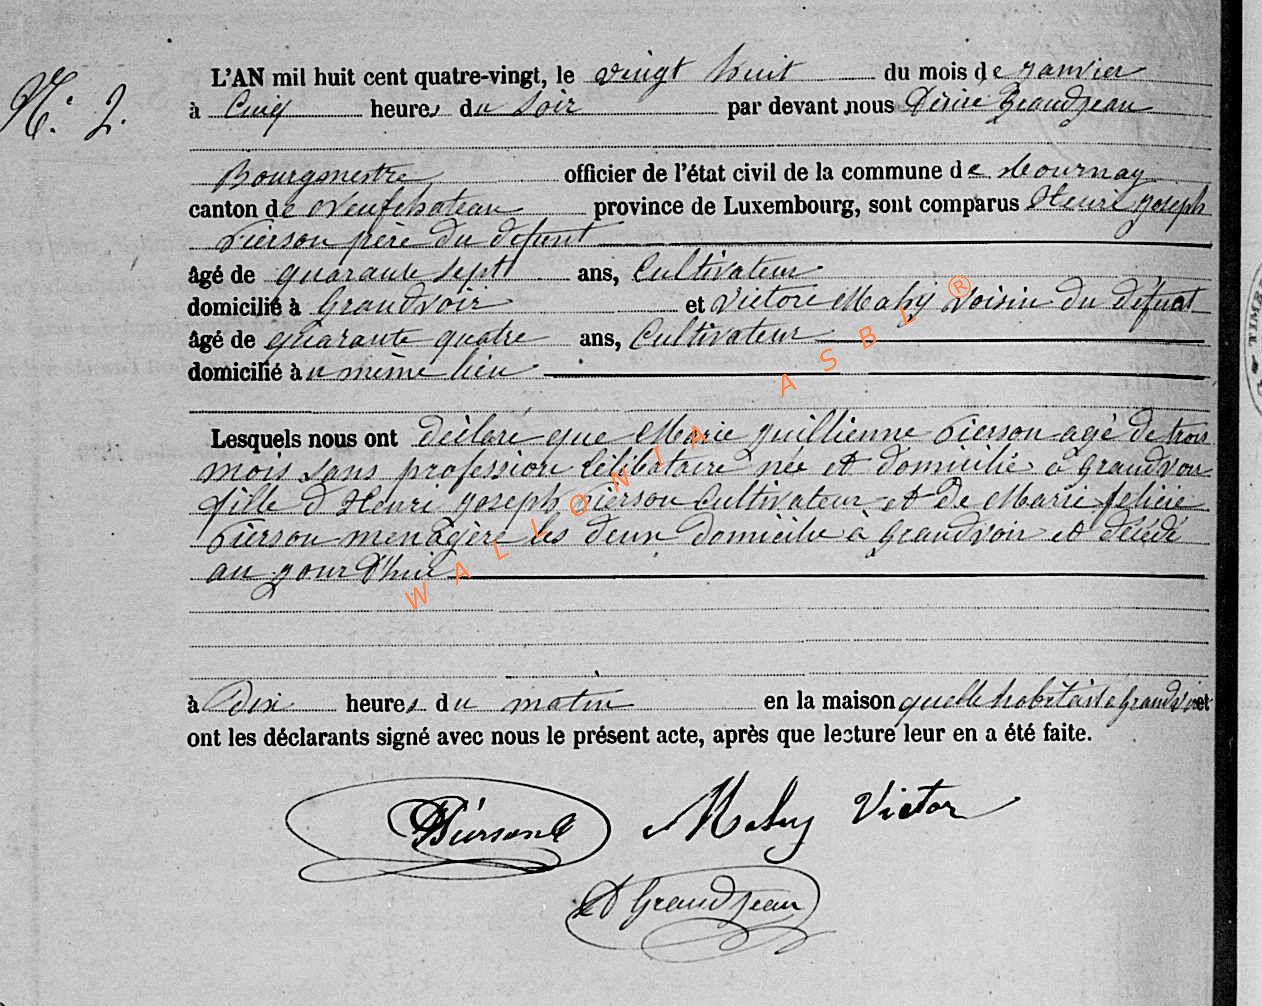 N.° 2.
L'AN mil huit cent quatre-vingt, le vingt huit du mois de Janvier
à Cinq heures du soir par devant nous Désiré Grandjean
Bourgmestre officier de l'état civil de la commune de Tournay
canton de Neufchateau province de Luxembourg, sont comparus Henri Joseph
Pierson père du défunt
âgé de quarante sept ans, Cultivateur
domicilié à Grandvoir et Victore Mahy voisin du défunt
âgé de quarante quatre ans, Cultivateur
domicilié àu même lieu
Lesquels nous ont déclaré que Marie Juillienne Pierson agé de trois
mois sans profession Célibataire née et domicilié à Grandvoir
fille d'Henri Joseph Pierson Cultivateur et de Marie félicie
Pierson menagère les deux Domicilie à Grandvoir et décédé
au jour d'hui
à Dix heures du matin en la maison quelle habitait a Grandvoir et
ont les déclarants signé avec nous le présent acte, après que lecture leur en a été faite.
Pierson Mahy Victor
D Grandjean
WALLONIA ASBL ®
TIMB